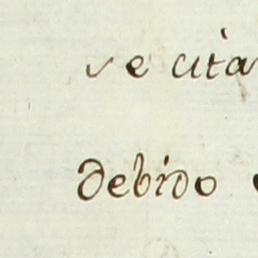 se cita
debido